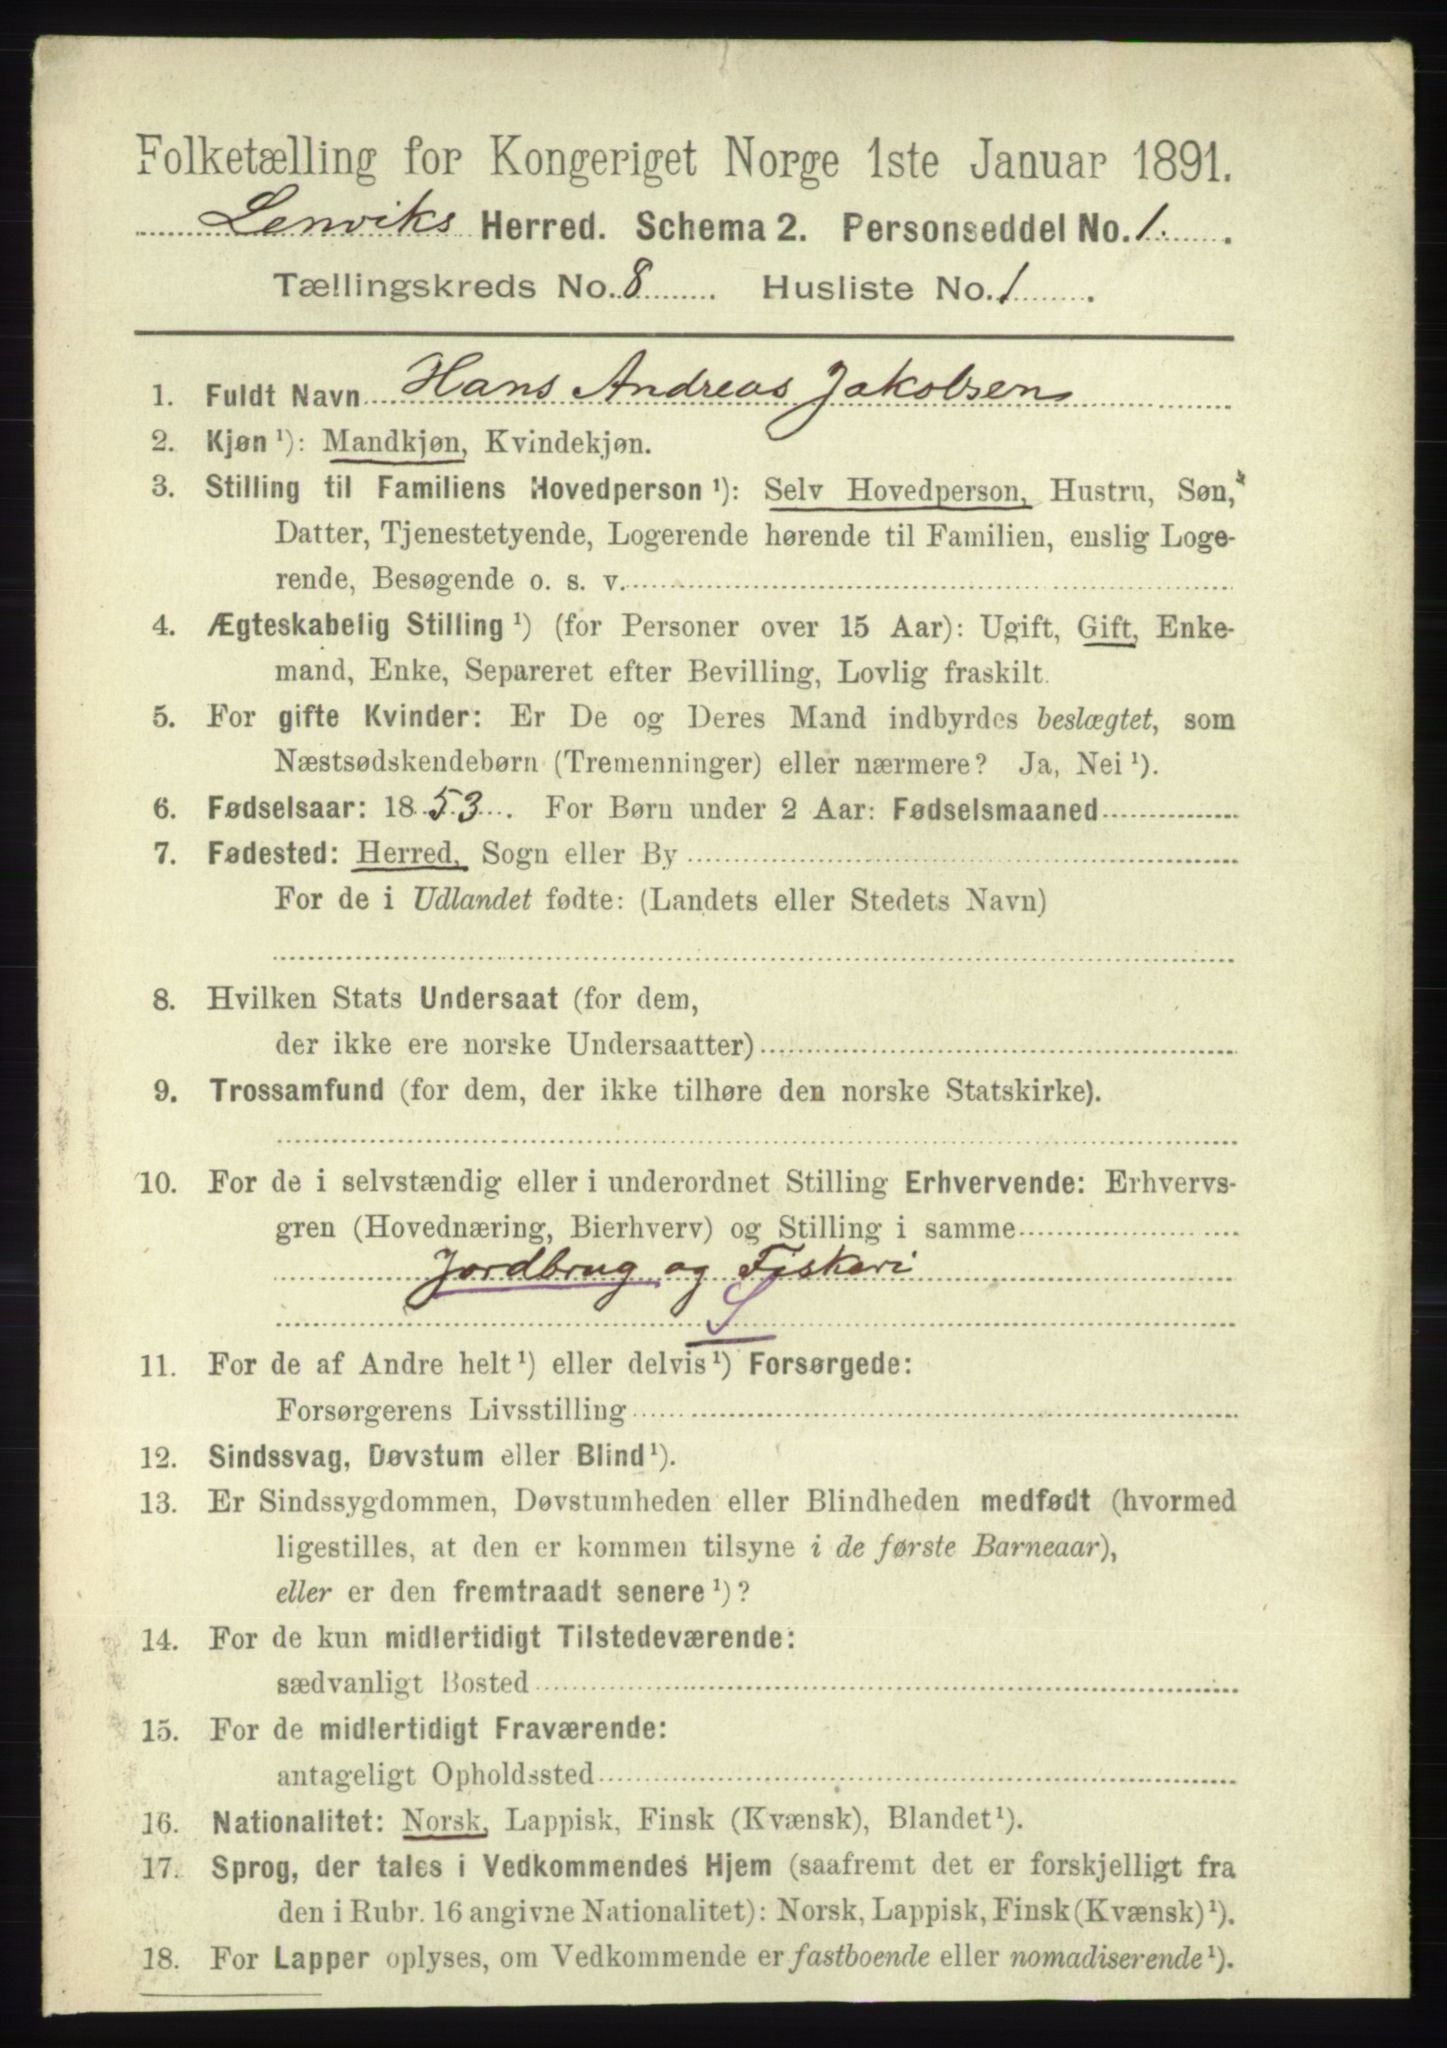 Folketælling for Kongeriget Norge 1ste Januar 1891.
Lenviks Herred. Schema 2. Personseddel No. 1.
Tællingskreds No. 8. Husliste No. 1.
1. Fuldt Navn Hans Andreas Jakobsen
2. Kjøn ¹): Mandkjøn, Kvindekjøn.
3. Stilling til Familiens Hovedperson ¹): Selv Hovedperson, Hustru, Søn,
Datter, Tjenestetyende, Logerende hørende til Familien, enslig Loge-
rende, Besøgende o. s. v.
4. Ægteskabelig Stilling ¹) (for Personer over 15 Aar): Ugift, Gift, Enke-
mand, Enke, Separeret efter Bevilling, Lovlig fraskilt.
5. For gifte Kvinder: Er De og Deres Mand indbyrdes beslægtet, som
Næstsødskendebørn (Tremenninger) eller nærmere? Ja, Nei ¹).
6. Fødselsaar: 1853. For Børn under 2 Aar: Fødselsmaaned
7. Fødested: Herred, Sogn eller By
For de i Udlandet fødte: (Landets eller Stedets Navn)
8. Hvilken Stats Undersaat (for dem,
der ikke ere norske Undersaatter)
9. Trossamfund (for dem, der ikke tilhøre den norske Statskirke).
10. For de i selvstændig eller i underordnet Stilling Erhvervende: Erhvervs-
gren (Hovednæring, Bierhverv) og Stilling i samme
Jordbrug og Fiskeri
S
11. For de af Andre helt ¹) eller delvis ¹) Forsørgede:
Forsørgerens Livsstilling
12. Sindssvag, Døvstum eller Blind ¹).
13. Er Sindssygdommen, Døvstumheden eller Blindheden medfødt (hvormed
ligestilles, at den er kommen tilsyne i de første Barneaar),
eller er den fremtraadt senere ¹)?
14. For de kun midlertidigt Tilstedeværende:
sædvanligt Bosted
15. For de midlertidigt Fraværende:
antageligt Opholdssted
16. Nationalitet: Norsk, Lappisk, Finsk (Kvænsk), Blandet ¹).
17. Sprog, der tales i Vedkommendes Hjem (saafremt det er forskjelligt fra
den i Rubr. 16 angivne Nationalitet): Norsk, Lappisk, Finsk (Kvænsk) ¹).
18. For Lapper oplyses, om Vedkommende er fastboende eller nomadiserende ¹).